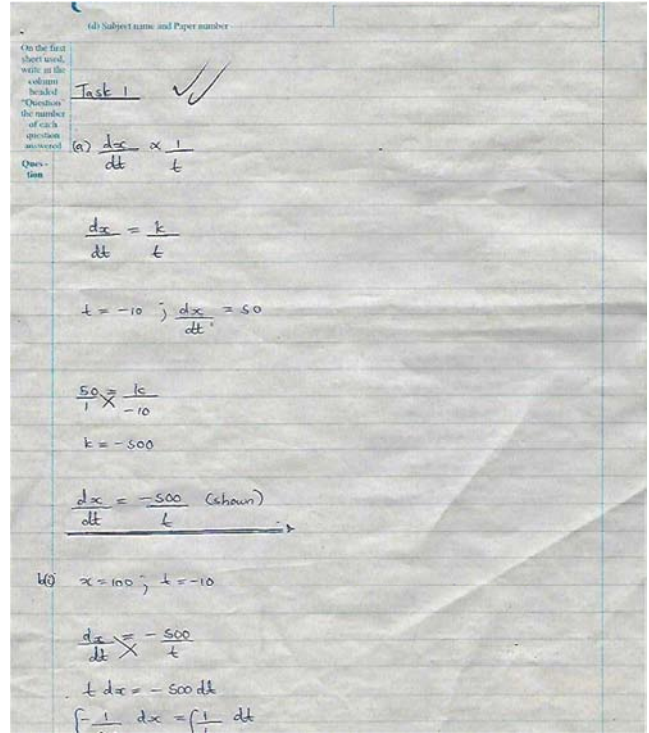 (d) Subject name and Paper number
On the first
sheet used,
write in the
column
headed
"Question"
the number
of each
question
answered
Ques-
tion
Task 1
(a) dx/dt ∝ 1/t
dx/dt = k/t
t = -10 ; dx/dt = 50
50/1 = k/-10
k = -500
dx/dt = -500/t (shown)
b(i) x = 100 ; t = -10
dx/dt = -500/t
t dx = -500 dt
∫ - 1 dx = ∫ 1 dt